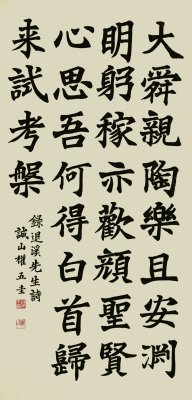 大舜親陶樂且安淵
明躬稼亦歡顔聖賢
心思吾何得白首歸
来試考槃
錄退溪先生詩
誠山權五奎